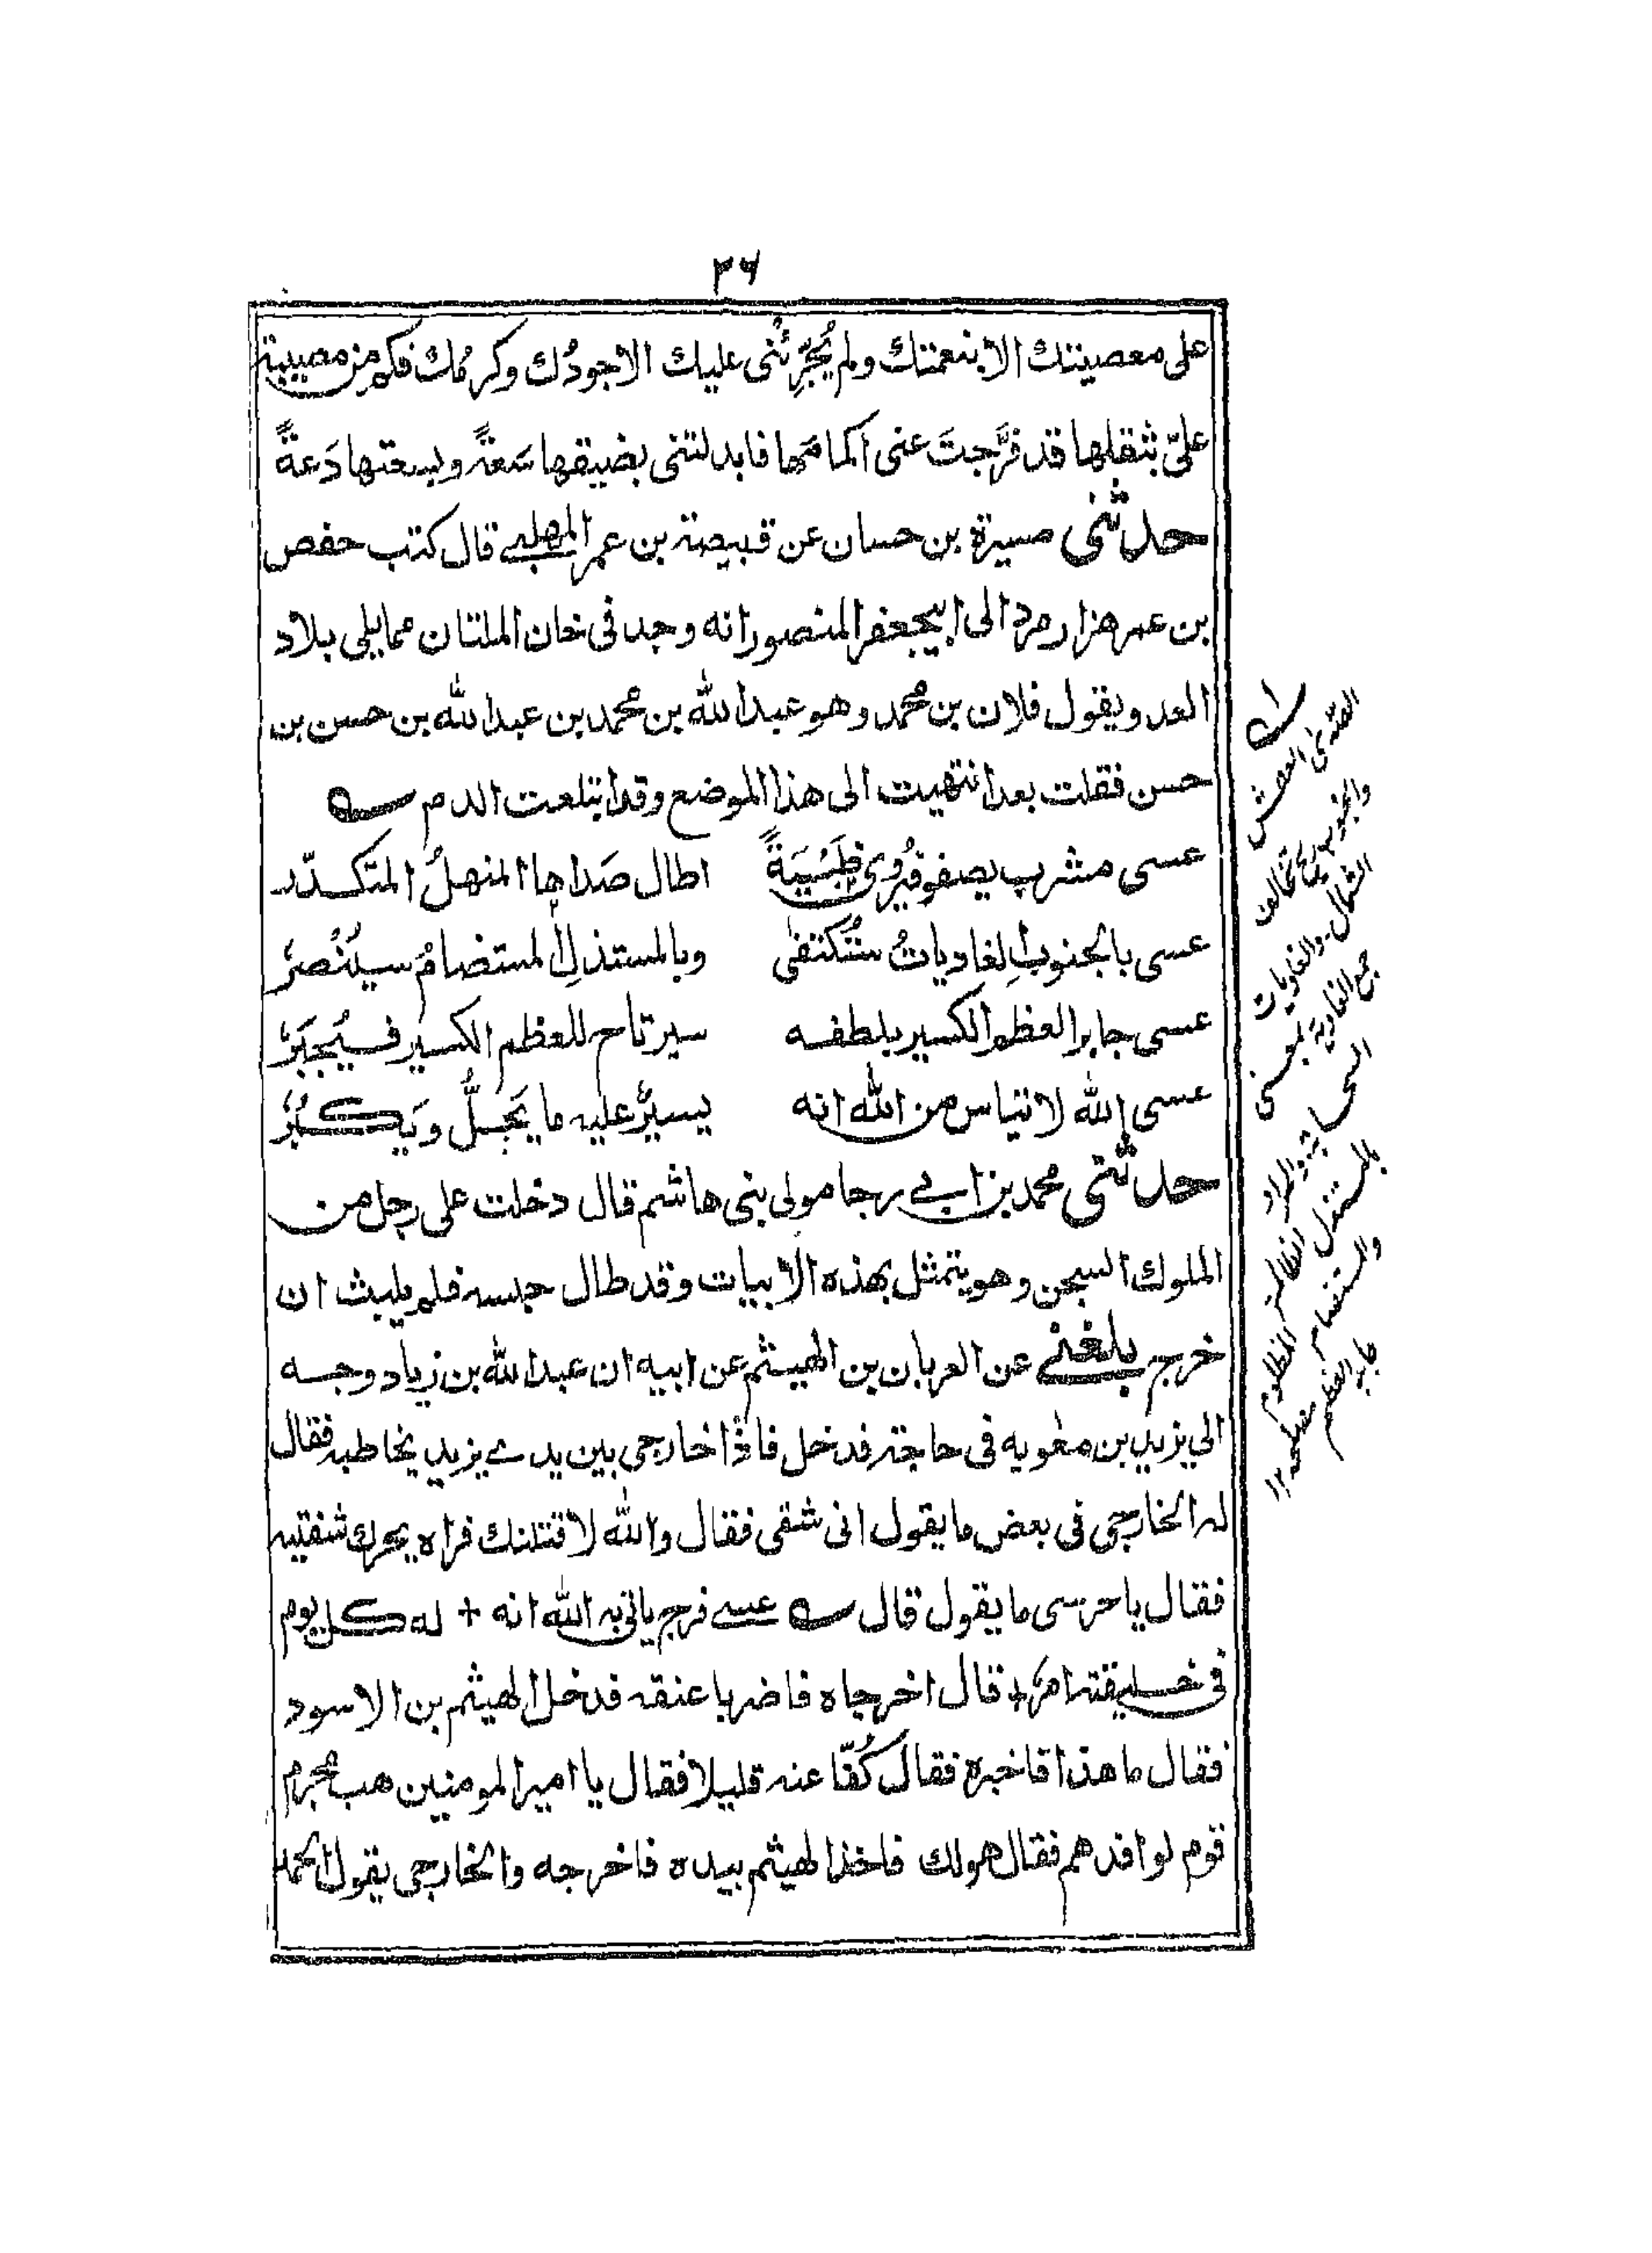 ٢٦
على معصيتك الا بنعمتك ولم يُجَرِّئنى عليك الا جودُك وكرمُك فكم من مصيبة
علىّ بثقلها قد فرَّجتَ عنى اكمامَها فابدلتنى بضيقها سَعةً وبسعتها دَعةً
حدثنى مسيرة بن حسان عن قبيصة بن عمر المهلبے قال كتب حفص
بن عمر هزارمرد الى ابيجعفر المنصور انه وجد فى خان الملتان مما يلى بلاد
العدو يقول فلان بن محمد وهو عبد الله بن محمد بن عبد الله بن حسن بن
حسن فقلت بعد انتهيت الى هذا الموضع وقد ابتلعت الدم
عسى مشرب يصفو فيُروى فلَبِيبَةً اطال صَداها المنهلُ المتكدّر
عسى بالجنوبِ الغادياتُ ستُكتفى وبالمستذلِّ المستضامُ سيُنْصرُ
عسى جابر العظم الكسير بلطفه سيرتاح للعظم الكسير فيُجبَرُ
عسى الله لا تياس من الله انه يسيرٌ عليه ما يَجِلُّ ويَكبُرُ
حدثنى محمد بن ابے رجا مولى بنى هاشم قال دخلت على رجل من
الملوك السجن وهو يتمثل بهذه الابيات وقد طال حبسه فلم يلبث ان
خرج بلغنے عن العريان بن الهيثم عن ابيه ان عبد الله بن زياد وجه
الي يزيد بن معوية فى حاجة فدخل فاذا خارجى بين يدے يزيد يخاطبه فقال
له الخارجى فى بعض ما يقول انى شقى فقال والله لاقتلنك فراه يحرك شفتيه
فقال يا حرسى ما يقول قال عسے فرج ياتى به الله انه + له كل يوم
فى خليقته امرٌ + قال اخرجاه فاضربا عنقه فدخل الهيثم بن الاسود
فقال ما هذا فاخبره فقال كُفّا عنه قليلا فقال يا امير المومنين هب مجرم
قوم لوافدهم فقال هو لك فاخذ الهيثم بيده فاخرجه والخارجى يقول الحمد
الصَّدى العطش
والجنوب ريح تخالف
الشمال والغاديات
جمع الغادية بمعنى
السحابة والمراد
بالمستذل الظالم
والمستضام المظلوم
جابر العظم مصلحه ١٢